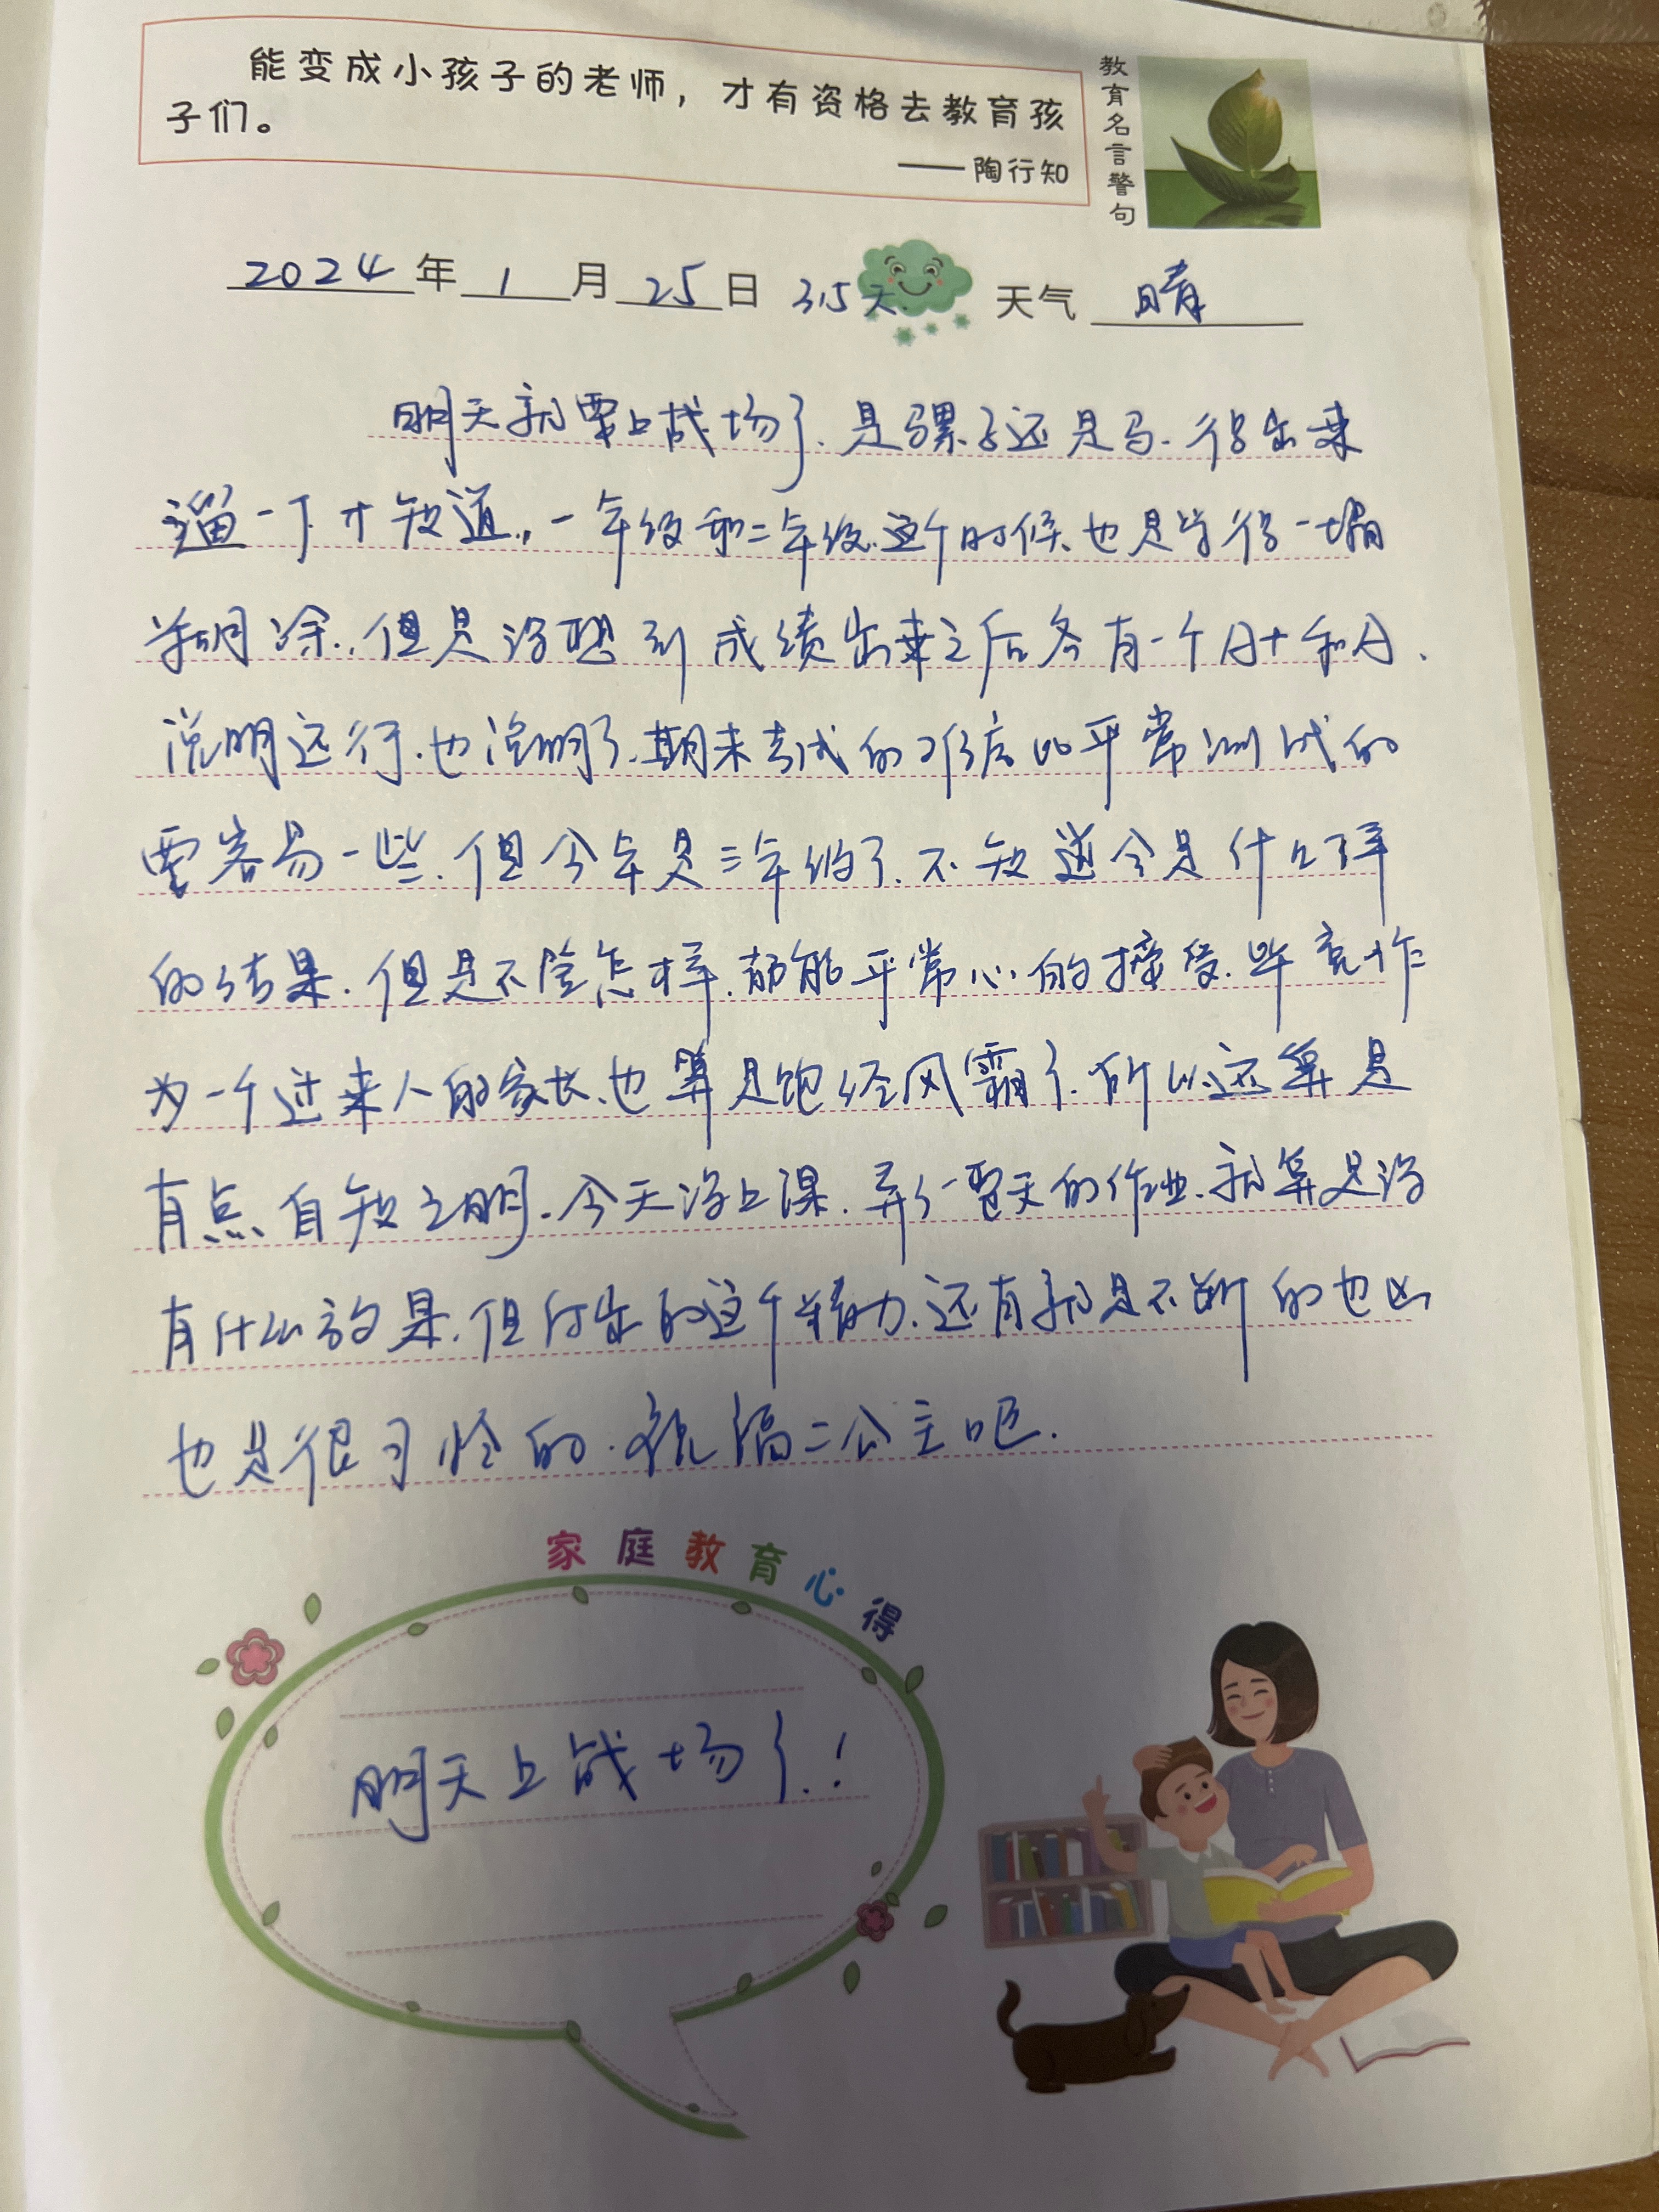 能变成小孩子的老师，才有资格去教育孩
子们。
——陶行知
教育名言警句
2024年1月25日 315天 天气 晴
明天就要上战场了.是骡子还是马.得出来
遛一下才知道.,一年级和二年级.这个时候.也是学得一塌
糊涂.,但是没想到成绩出来之后各有一个A+和A.
说明还行.也说明了.期末考试的难度比平常测试的
要容易一些.但今年是三年级了.不知道会是什么样
的结果.但是不论怎样.都能平常心的接受.毕竟作
为一个过来人的家长.也算是饱经风霜了.所以.还算是
有点自知之明.今天没上课.弄了一整天的作业.就算是没
有什么效果.但付出的这个精力.还有就是不断的也凶
也是很习惯的.祝福二公主吧.
家庭教育心得
明天上战场了.!